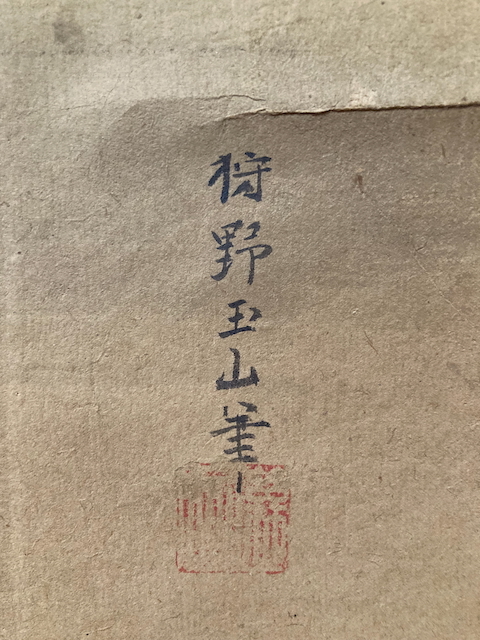 狩野玉山筆